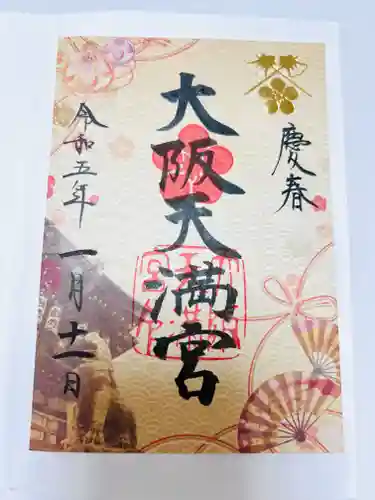 慶春
大阪天満宮
令和五年 一月十一日